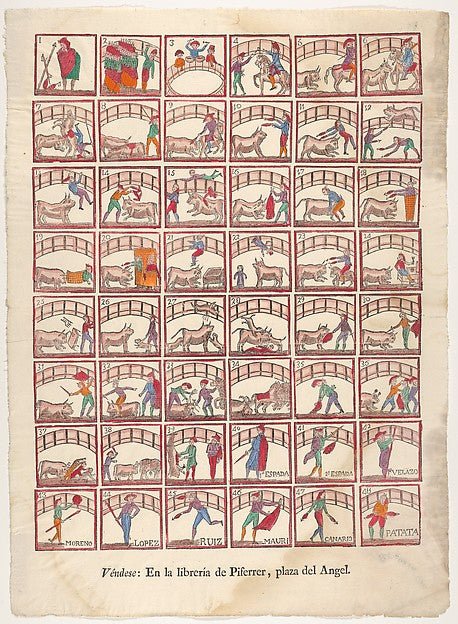 1 2 3 4 5 6
7 8 9 10 11 12
13 14 15 16 17 18
19 20 21 22 23 24
25 26 27 28 29 30
31 32 33 34 35 36
37 38 39 40 41 42
ESPADA 2ª ESPADA VELAZO
43 44 45 46 47 48
MORENO LOPEZ RUIZ MAURI CANARIO PATATA
Véndese: En la librería de Piferrer, plaza del Angel.